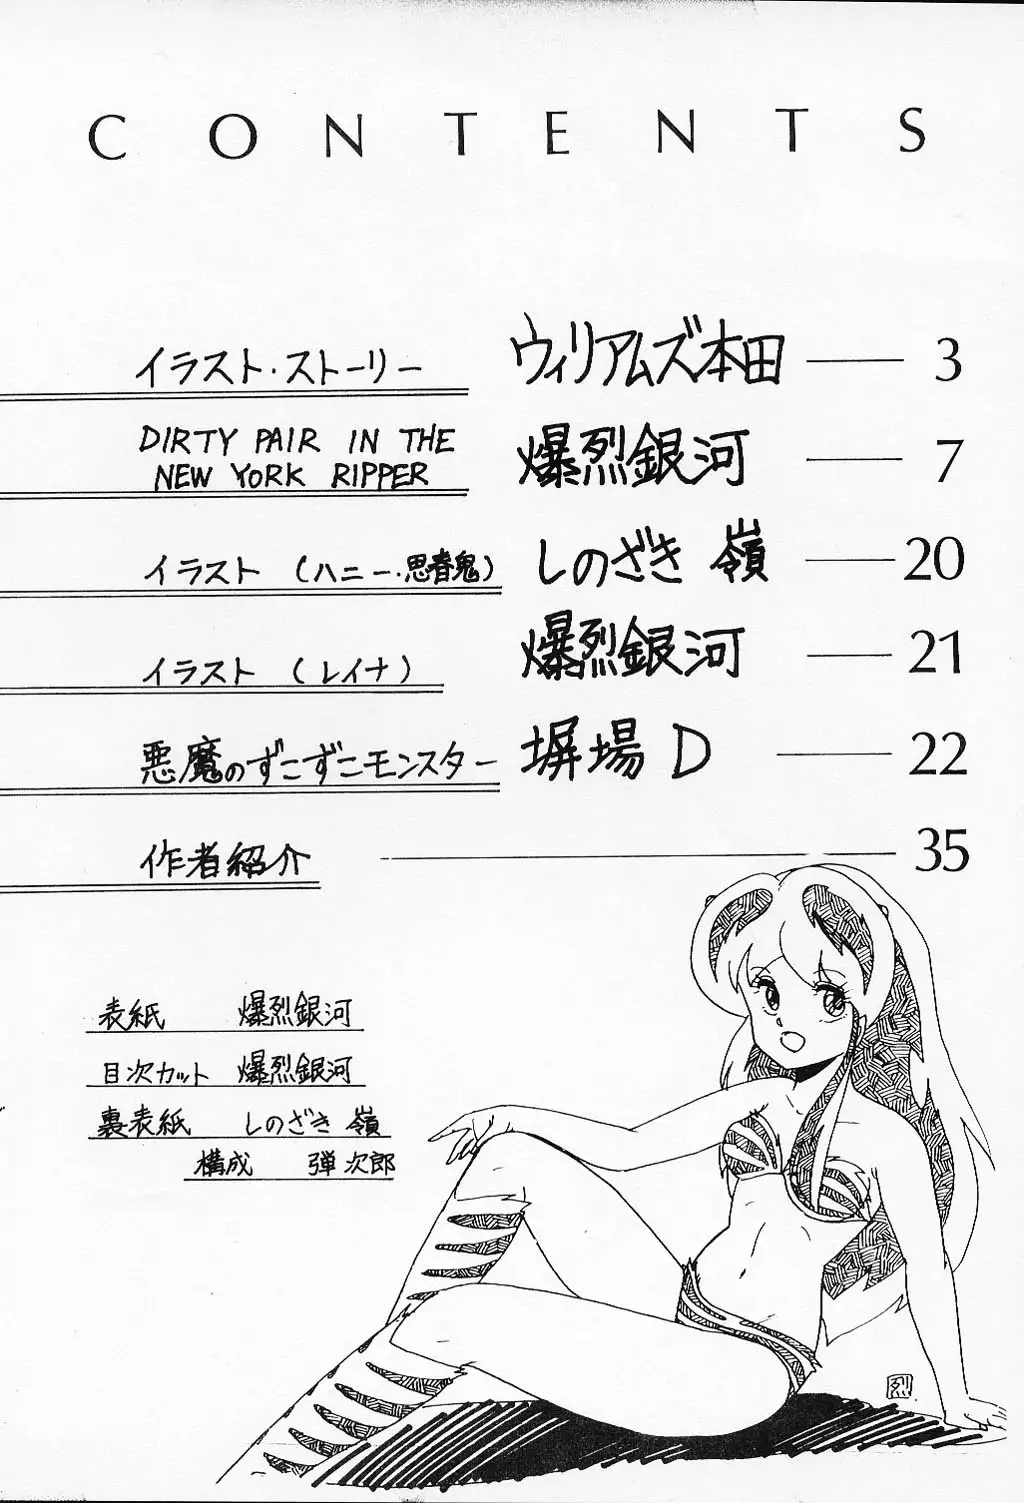 CONTENTS
イラスト・ストーリー ウィリアムズ本田 3
DIRTY PAIR IN THE
NEW YORK RIPPER 爆烈銀河 7
イラスト (ハニー・思春鬼) しのざき 嶺 20
イラスト (レイナ) 爆烈銀河 21
悪魔のずこずこモンスター 塀場 D 22
作者紹介 35
表紙 爆烈銀河
目次カット 爆烈銀河
裏表紙 しのざき 嶺
構成 弾 次郎
烈